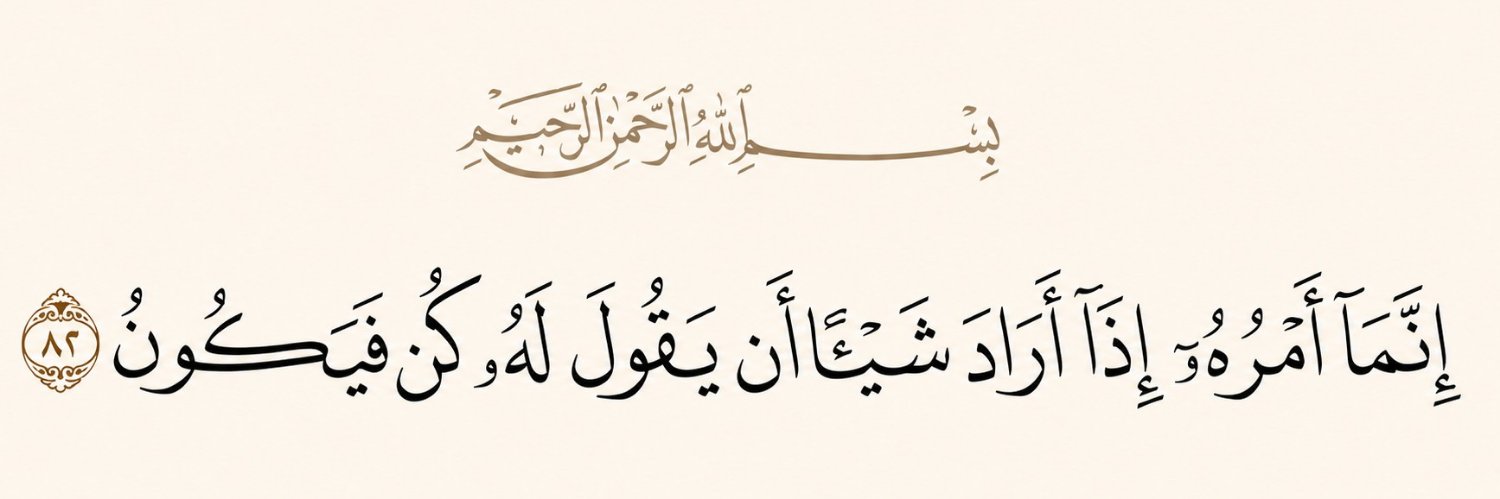 بِسْمِ ٱللَّهِ ٱلرَّحْمَٰنِ ٱلرَّحِيمِ
إِنَّمَآ أَمْرُهُۥٓ إِذَآ أَرَادَ شَيْـًٔا أَن يَقُولَ لَهُۥ كُن فَيَكُونُ ٨٢